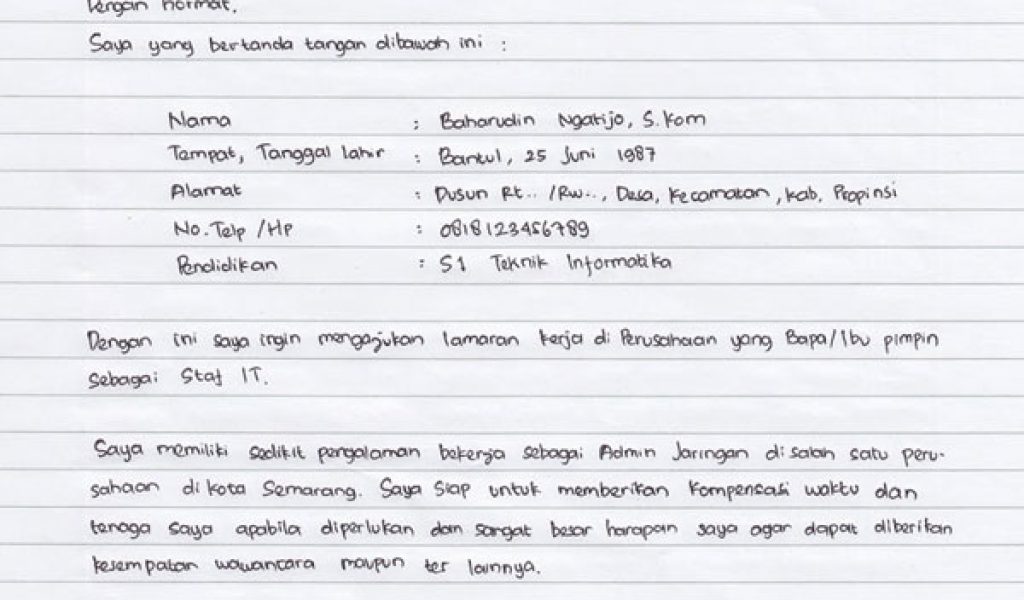 Dengan hormat.
Saya yang bertanda tangan dibawah ini :
Nama : Baharudin Ngatijo, S.Kom
Tempat, Tanggal lahir : Bantul, 25 Juni 1987
Alamat : Dusun Rt.. /Rw.., Desa, Kecamatan, Kab. Propinsi
No.Telp /Hp : 0818123456789
Pendidikan : S1 Teknik Informatika
Dengan ini saya ingin mengajukan lamaran kerja di Perusahaan yang Bapa/Ibu pimpin
sebagai Staf IT.
Saya memiliki sedikit pengalaman bekerja sebagai Admin Jaringan di salah satu peru-
sahaan di kota Semarang. Saya siap untuk memberikan kompensasi waktu dan
tenaga saya apabila diperlukan dan sangat besar harapan saya agar dapat diberikan
kesempatan wawancara maupun tes lainnya.